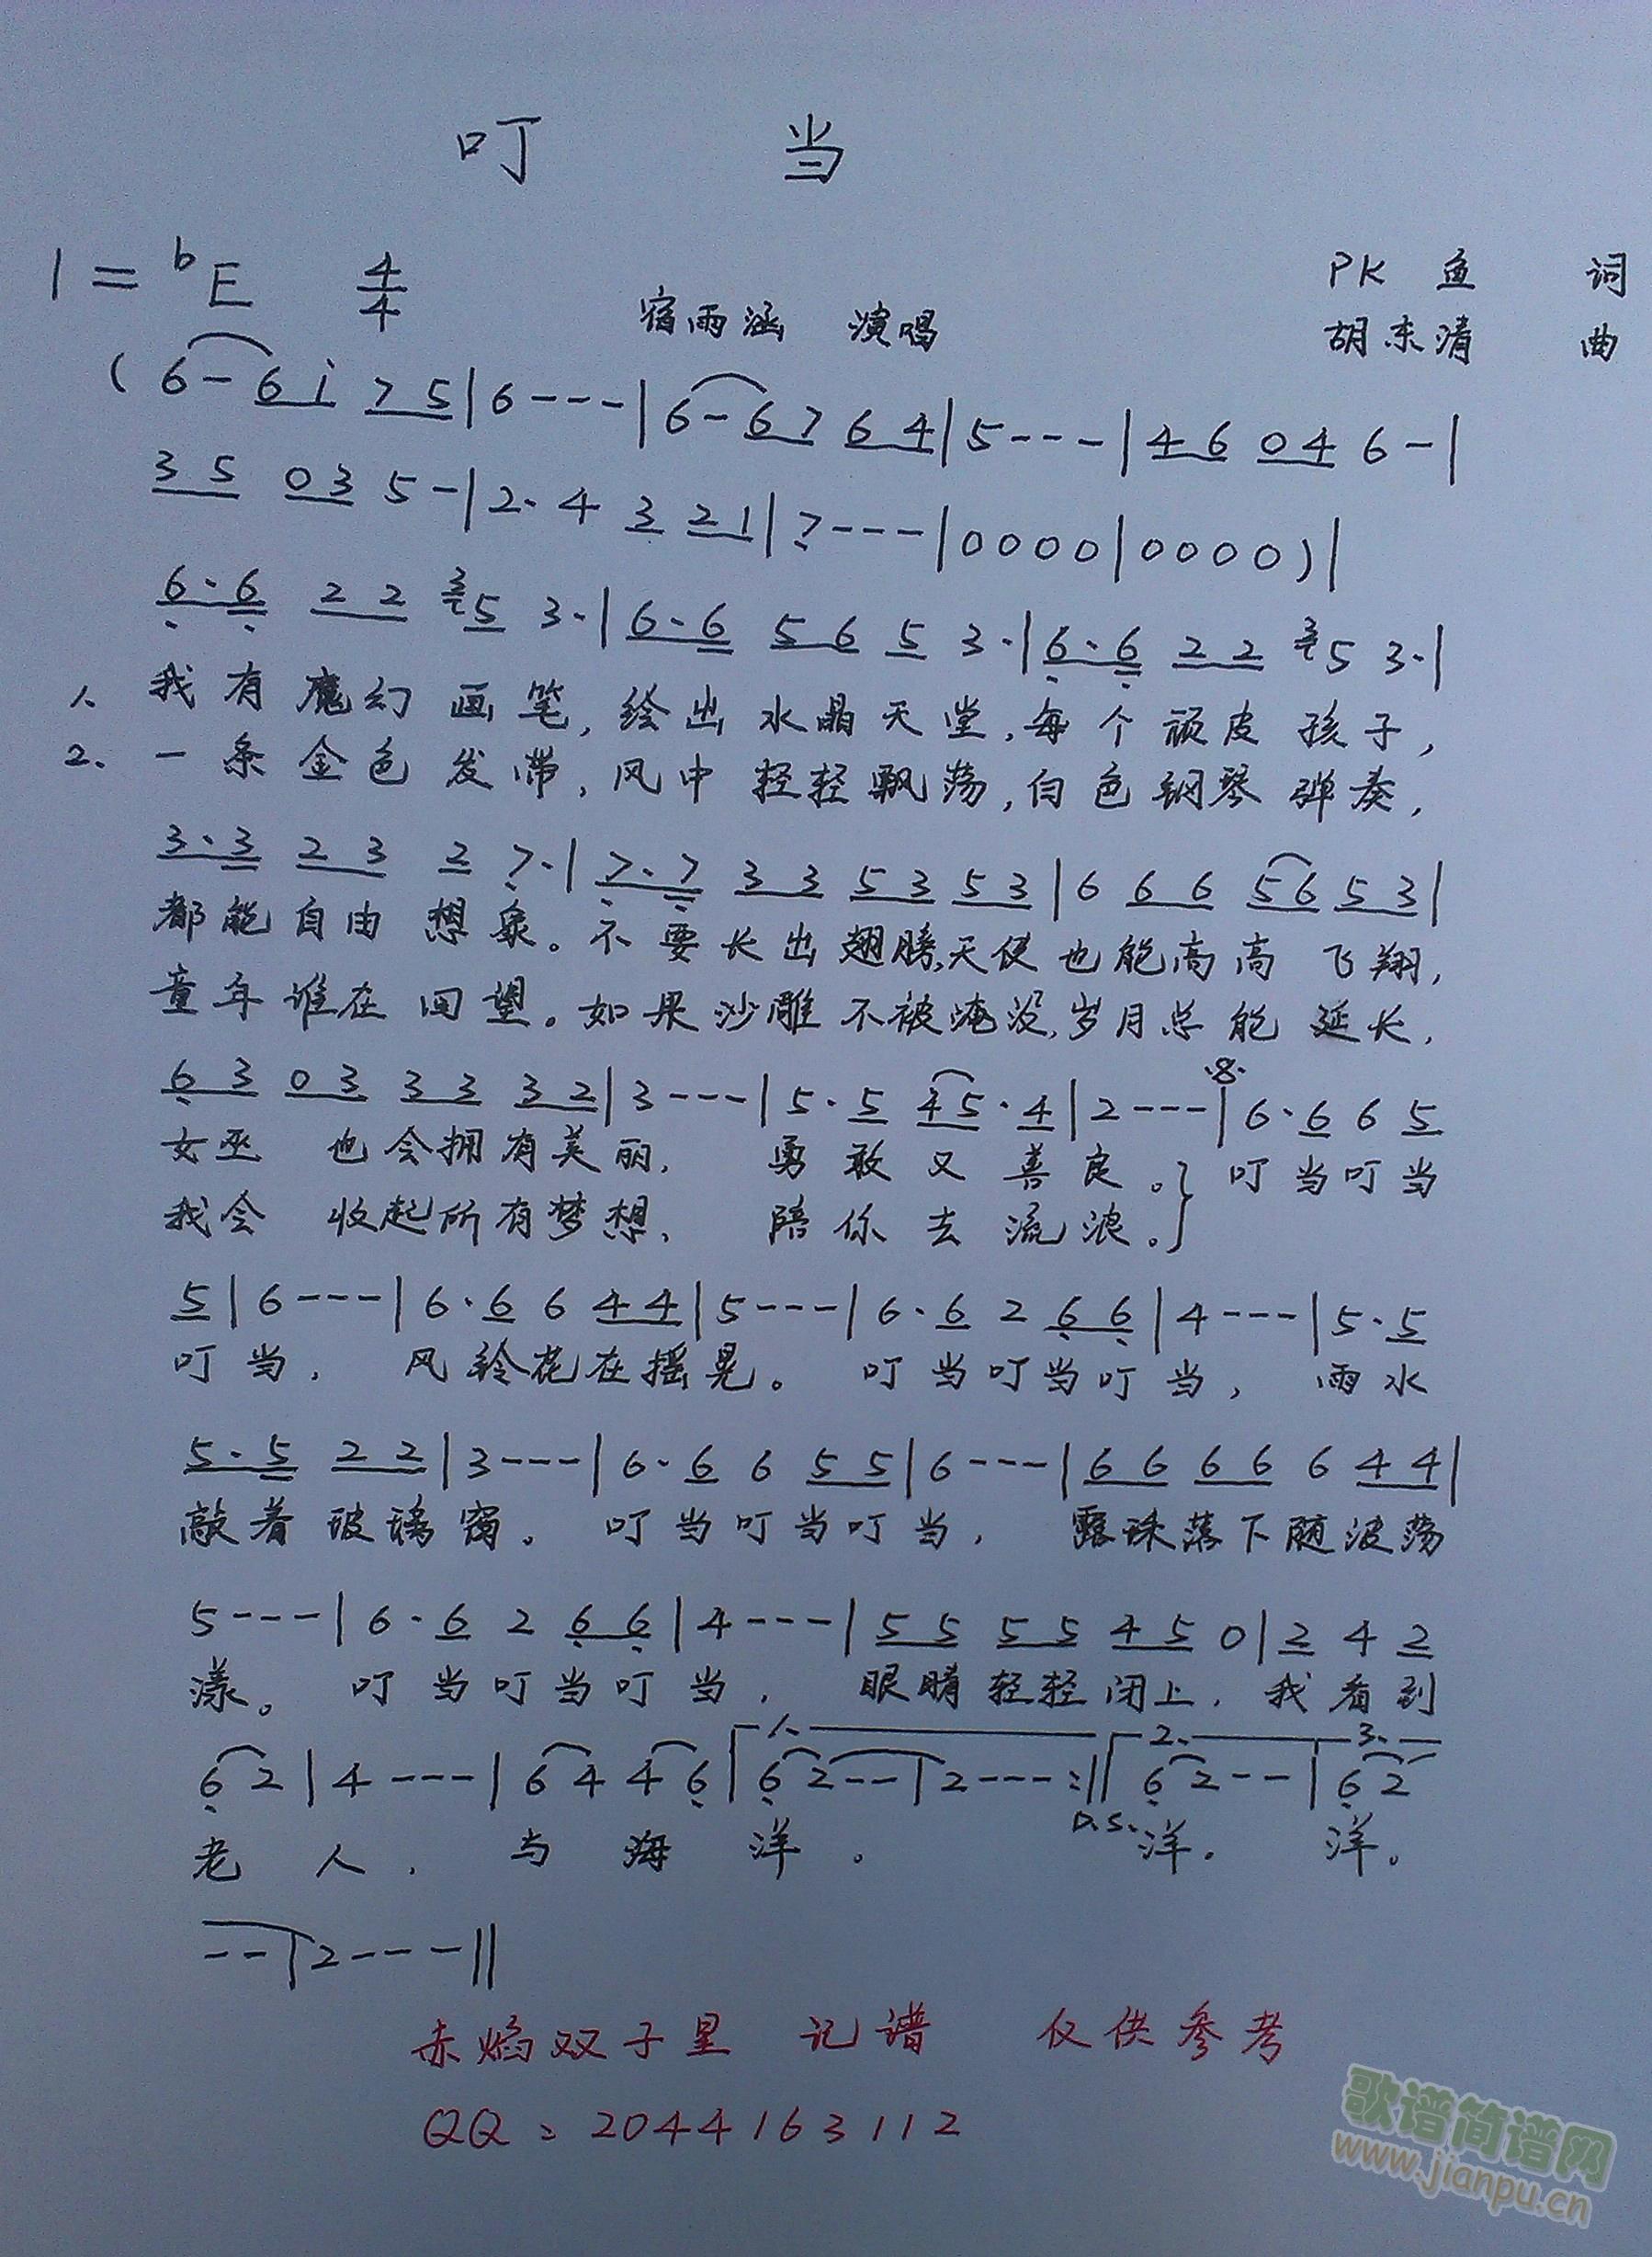 叮 当
1=bE 4/4
PK 鱼 词
宿雨涵 演唱
胡东清 曲
(6-6i 75|6---|6-67 64|5---|46 04 6-|
35 03 5-|2·4 3 21|7---|0000|0000)|
6·6 22 3 5 3·|6·6 56 5 3·|6·6 22 3 5 3·|
1、我有魔幻画笔,绘出水晶天堂,每个顽皮孩子,
2、一条金色发带,风中轻轻飘荡,白色钢琴弹奏,
3·3 23 2 7·|7·7 33 53 53|6 66 56 53|
都能自由想象。不要长出翅膀,天使也能高高飞翔,
童年谁在回望。如果沙雕不被淹没,岁月总能延长,
63 03 33 32|3---|5·5 45·4|2---|6·6 6 5
女巫 也会拥有美丽, 勇敢又善良。} 叮当叮当
我会 收起所有梦想, 陪你去流浪。}
5|6---|6·6 6 44|5---|6·6 2 66|4---|5·5
叮当, 风铃花在摇晃。 叮当叮当叮当, 雨水
5·5 22|3---|6·6 6 55|6---|66 66 6 44|
敲着玻璃窗。 叮当叮当叮当, 露珠落下随波荡
5---|6·6 2 66|4---|55 55 45 0|2 4 2
漾。 叮当叮当叮当, 眼睛轻轻闭上,我看到
1、 2、 3、
62|4---|64 46|62--|2---:||62--|62
D.S.
老人, 与海洋。 洋。 洋。
--|2---||
赤焰双子星 记谱 仅供参考
QQ:2044163112
歌谱简谱网
www.jianpu.cn